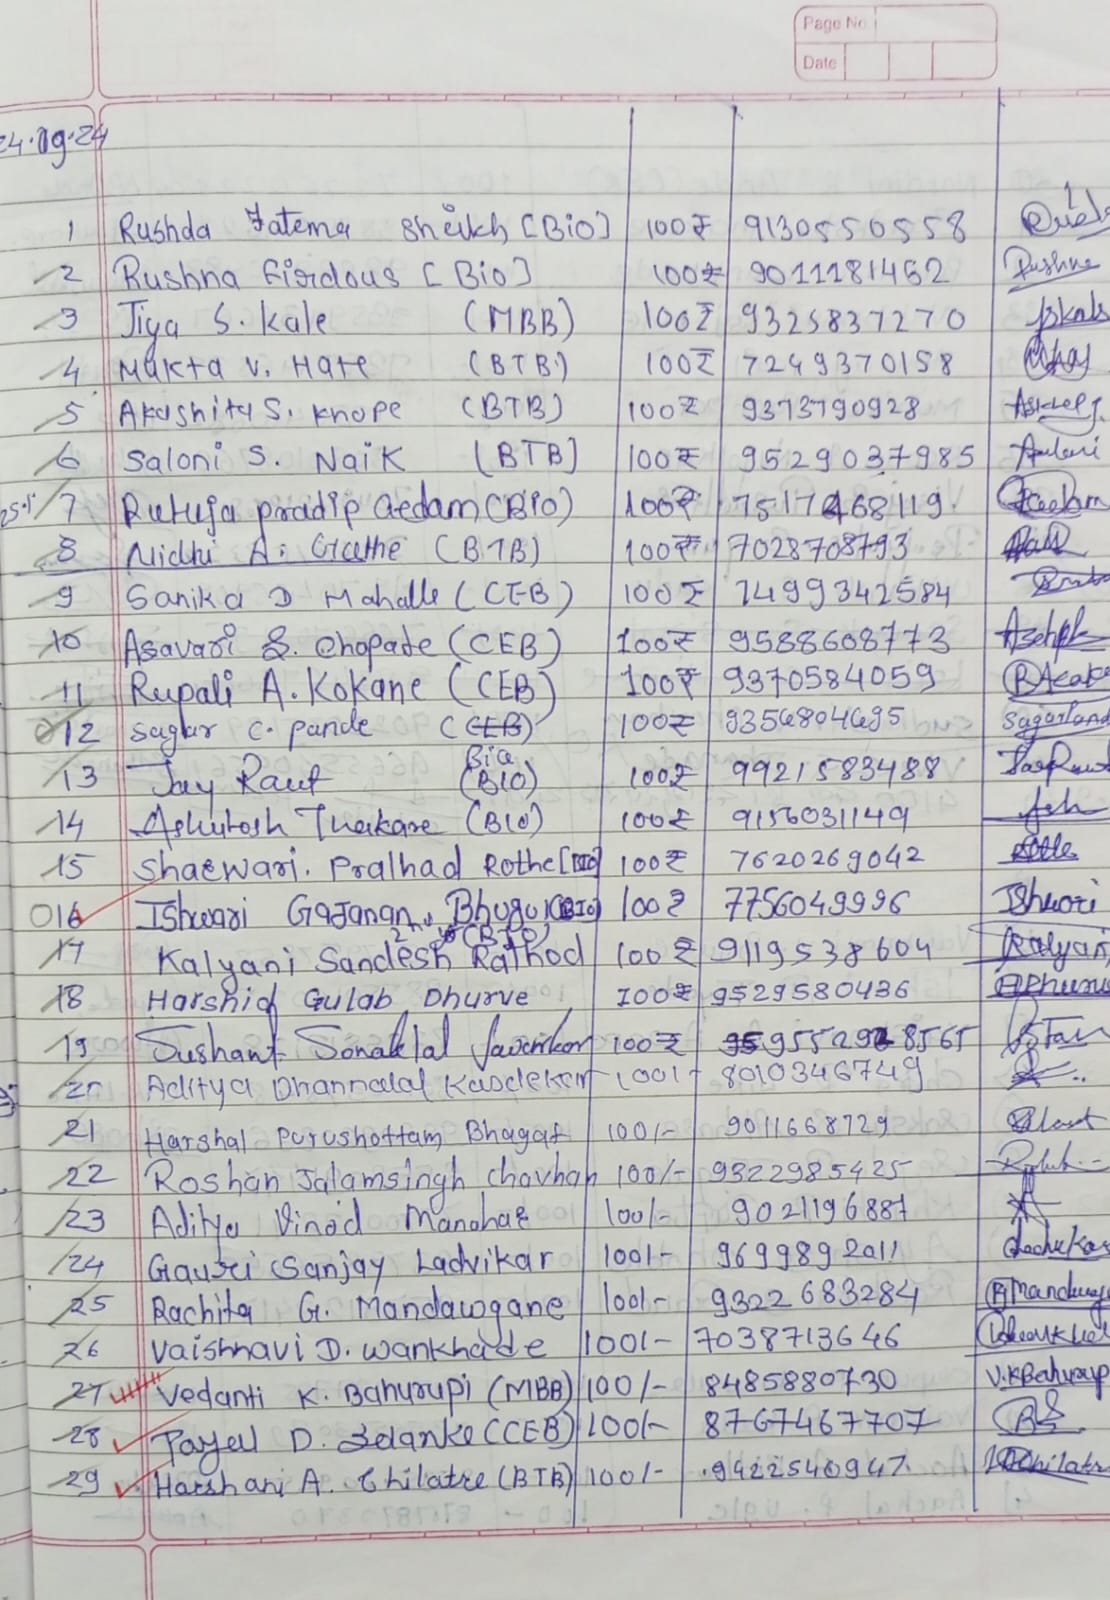 Page No
Date
24.09.24
1 Rushda Fatema Sheikh [Bio] 100₹ 9130550558
2 Rushna Firdous [Bio] 100₹ 9011181462 Rushna
3 Jiya S. Kale (MBB) 100₹ 9325837270
4 Mukta V. Hate (BTB) 100₹ 7249370158
5 Akashity S. Khope (BTB) 100₹ 9373790928
6 Saloni S. Naik [BTB] 100₹ 9529037985
7 Rutuja pradip Gedam (BIO) 100₹ 7517468119
8 Nidhi A. Gathe (BTB) 100₹ 7028708793
9 Sanika D Mahalle (CEB) 100₹ 7499342584
10 Asavari S. Chopade (CEB) 100₹ 9588608773
11 Rupali A. Kokane (CEB) 100₹ 9370584059
12 Sagar C. pande (CEB) 100₹ 9356804695
Bio
13 Jay Raut (BIO) 100₹ 9921583488
14 Ashutosh Thakare (BIO) 100₹ 9156031149 Ash
15 Shaewari. Pralhad Rothe [BIO] 100₹ 7620269042
16 Ishwari Gajanan (BIO) 100₹ 7756049996 Ishwari
17 Kalyani Sandesh Rathod 100₹ 9119538604 Kalyani
18 Harshid Gulab Dhurve 100₹ 9529580436
19 Sushant 100₹
20 Aditya 100/- 8010346749
21 Harshal Purushottam Bhagat 100/- 9011668729
22 Roshan Jalamsingh chavhan 100/- 9322985425
23 Aditya Vinod Manohar 100/- 9021196887
24 Gauri Sanjay Ladvikar 100/- 9699892011
25 Rachita G. Mandawgane 100/- 9322683284
26 Vaishnavi D. Wankhade 100/- 7038713646
27 Vedanti K. Bahurupi (MBB) 100/- 8485880730 V.K Bahurupi
28 Payel D. (CEB) 100/- 8767467707
29 Harshani A. Chilatre (BTB) 100/- 9422540947